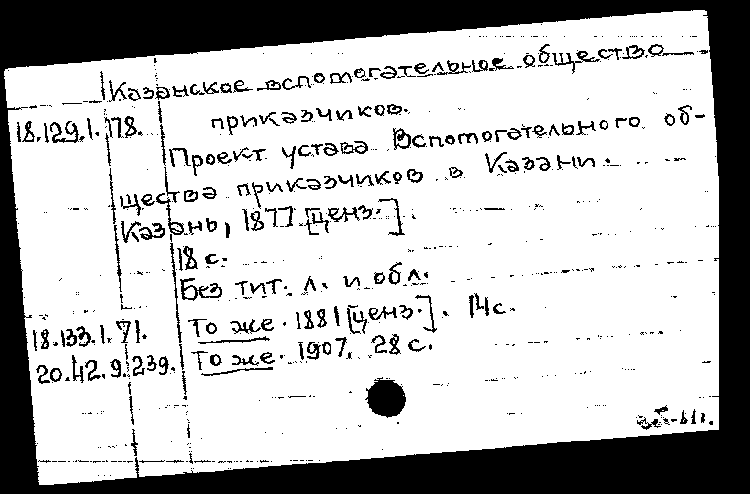 Казанское вспомогательное общество
18.129.1.178. приказчиков.
Проект устава Вспомогательного об-
щества приказчиков в Казани.
Казань, 1877 [ценз.].
18 с.
Без тит. л. и обл.
18.133.1.71. То же. 1881 [ценз.]. 14 с.
20.42.9.239. То же. 1907. 28 с.